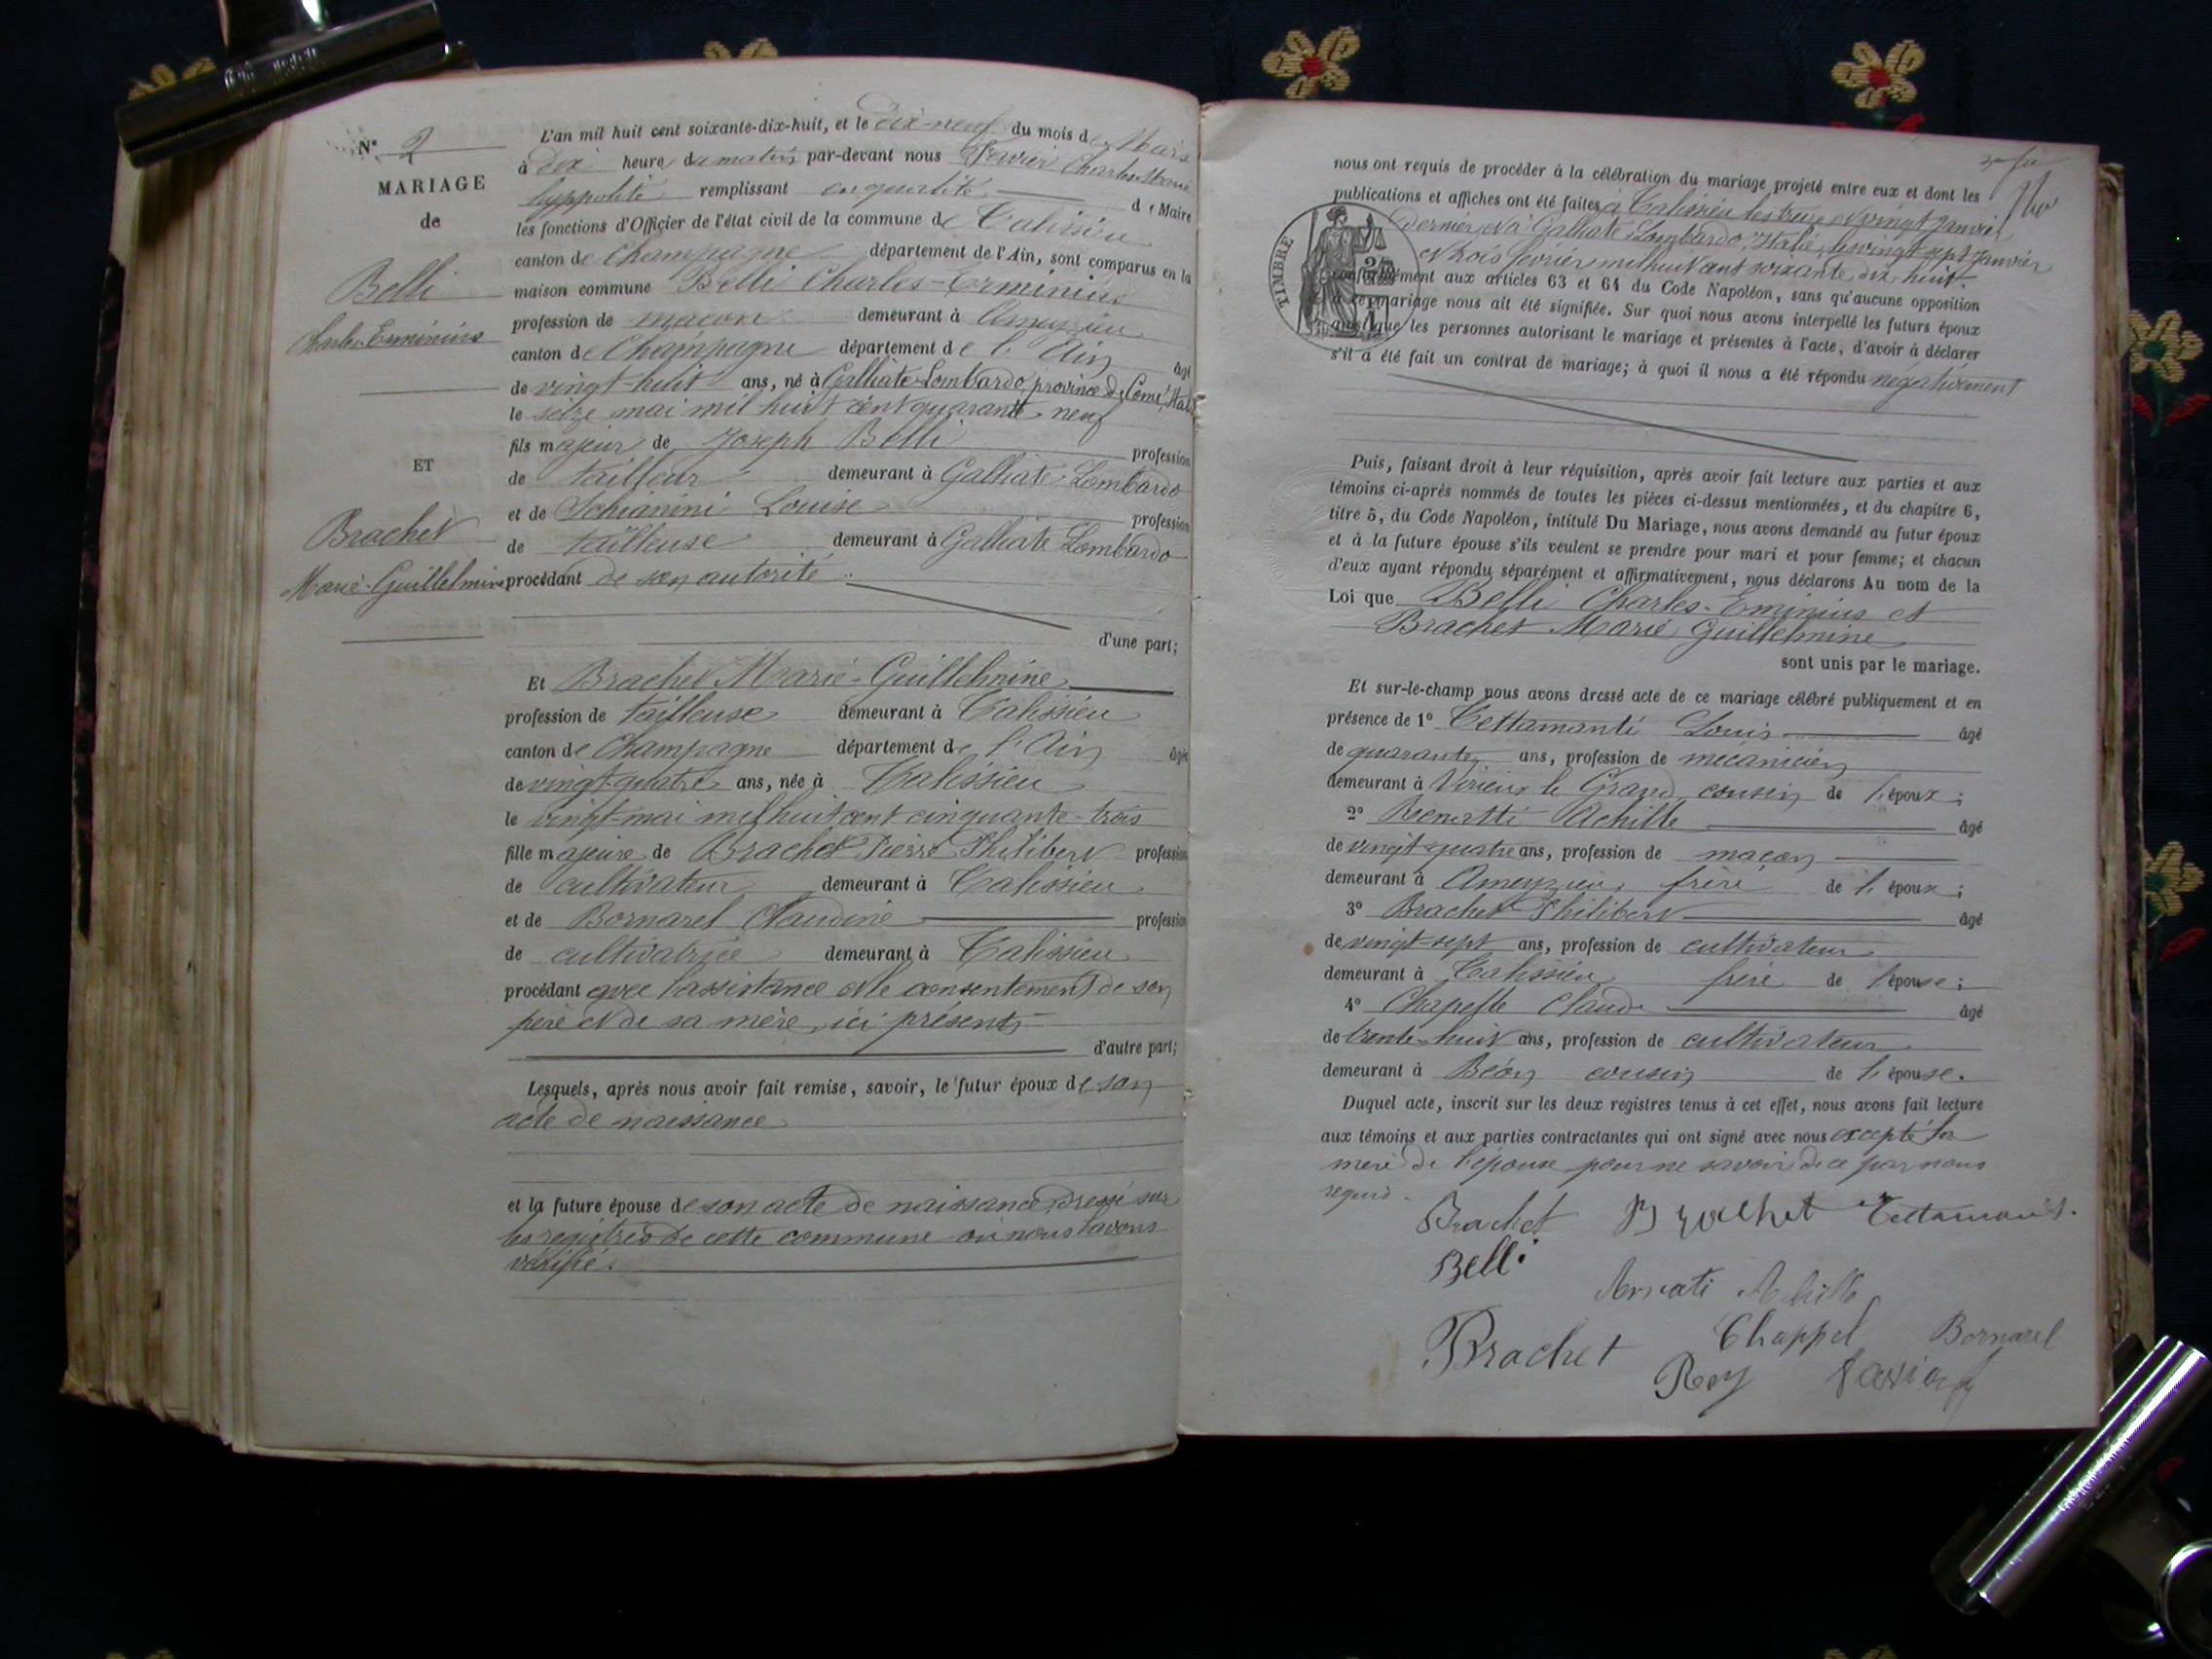 N° 2
MARIAGE
de
Belli
Charles-Erminius
ET
Brachet
Marie-Guillelmine
L'an mil huit cent soixante-dix-huit, et le dix-neuf du mois de Mars
à dix heure du matin par-devant nous Savier Charles Marie
hyppolite remplissant en qualité de Maire
les fonctions d'Officier de l'état civil de la commune de Talissieu
canton de Champagne département de l'Ain, sont comparus en la
maison commune Belli Charles-Erminius
profession de maçon demeurant à Ameyzieu
canton de Champagne département de l'Ain âgé
de vingt-huit ans, né à Galliate-Lombardo, province de Come, Italie
le seize mai mil huit cent quarante-neuf
fils majeur de Joseph Belli profession
de tailleur demeurant à Galliate-Lombardo
et de Schianini Louise profession
de tailleuse demeurant à Galliate Lombardo
procédant de son autorité
d'une part;
Et Brachet Marie-Guillelmine
profession de tailleuse demeurant à Talissieu
canton de Champagne département de l'Ain âgée
de vingt-quatre ans, née à Talissieu
le vingt mai mil huit cent cinquante-trois
fille majeure de Brachet Pierre Philibert profession
de cultivateur demeurant à Talissieu
et de Bornarel Claudine profession
de cultivatrice demeurant à Talissieu
procédant avec l'assistance et le consentement de son
père et de sa mère, ici présents
d'autre part;
Lesquels, après nous avoir fait remise, savoir, le futur époux de son
acte de naissance
et la future épouse de son acte de naissance dressé sur
les registres de cette commune où nous l'avons
vérifié.
nous ont requis de procéder à la célébration du mariage projeté entre eux et dont les
publications et affiches ont été faites à Talissieu les treize et vingt janvier
dernier, et à Galliate-Lombardo, Italie, les vingt-sept janvier
et trois février mil huit cent soixante-dix-huit.
TIMBRE
conformément aux articles 63 et 64 du Code Napoléon, sans qu'aucune opposition
à ce mariage nous ait été signifiée. Sur quoi nous avons interpellé les futurs époux
ainsi que les personnes autorisant le mariage et présentes à l'acte, d'avoir à déclarer
s'il a été fait un contrat de mariage; à quoi il nous a été répondu négativement
Puis, faisant droit à leur réquisition, après avoir fait lecture aux parties et aux
témoins ci-après nommés de toutes les pièces ci-dessus mentionnées, et du chapitre 6,
titre 5, du Code Napoléon, intitulé Du Mariage, nous avons demandé au futur époux
et à la future épouse s'ils veulent se prendre pour mari et pour femme; et chacun
d'eux ayant répondu séparément et affirmativement, nous déclarons Au nom de la
Loi que Belli Charles-Eminius et
Brachet Marie Guillelmine
sont unis par le mariage.
Et sur-le-champ nous avons dressé acte de ce mariage célébré publiquement et en
présence de 1° Tettamanti Louis âgé
de quarante ans, profession de mécanicien
demeurant à Virieux le Grand, cousin de l'époux;
2° Achille âgé
de vingt-quatre ans, profession de maçon
demeurant à Ameyzieu, frère de l'époux;
3° Brachet Philibert âgé
de vingt-sept ans, profession de cultivateur
demeurant à Talissieu frère de l'épouse;
4° Chapelle Claude âgé
de trente-huit ans, profession de cultivateur
demeurant à Béon cousin de l'épouse.
Duquel acte, inscrit sur les deux registres tenus à cet effet, nous avons fait lecture
aux témoins et aux parties contractantes qui ont signé avec nous excepté la
mère de l'épouse pour ne savoir de ce par nous
requis.
Brachet Brachet Tettamanti.
Belli
Achille
Brachet Chappel Bornarel
Rey Savier